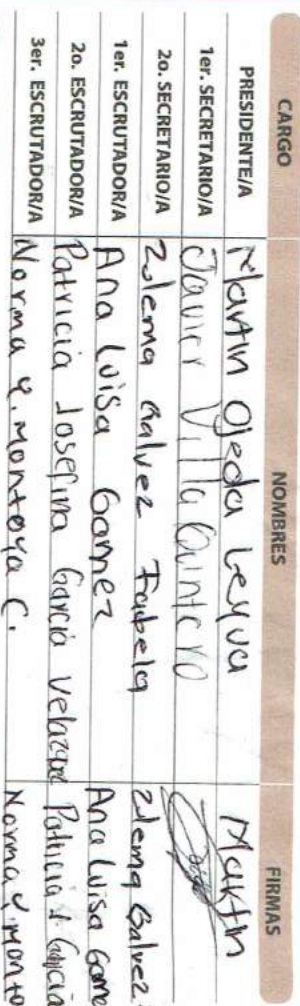 CARGO NOMBRES FIRMAS
PRESIDENTE/A Martin Ojeda Leyva Martin
1er. SECRETARIO/A Javier Villa Quintero
2o. SECRETARIO/A Zulema Galvez Fabela Zulema Galvez
1er. ESCRUTADOR/A Ana Luisa Gamez Ana Luisa Game
2o. ESCRUTADOR/A Patricia Josefina Garcia Velazqez Patricia J Garcia
3er. ESCRUTADOR/A Norma Y. Montoya C. Norma Y. Monto